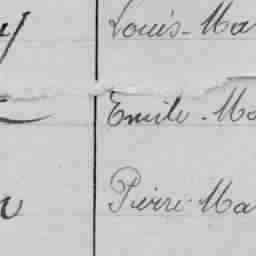 Louis-Ma
Emile-Ma
Pierre-Ma